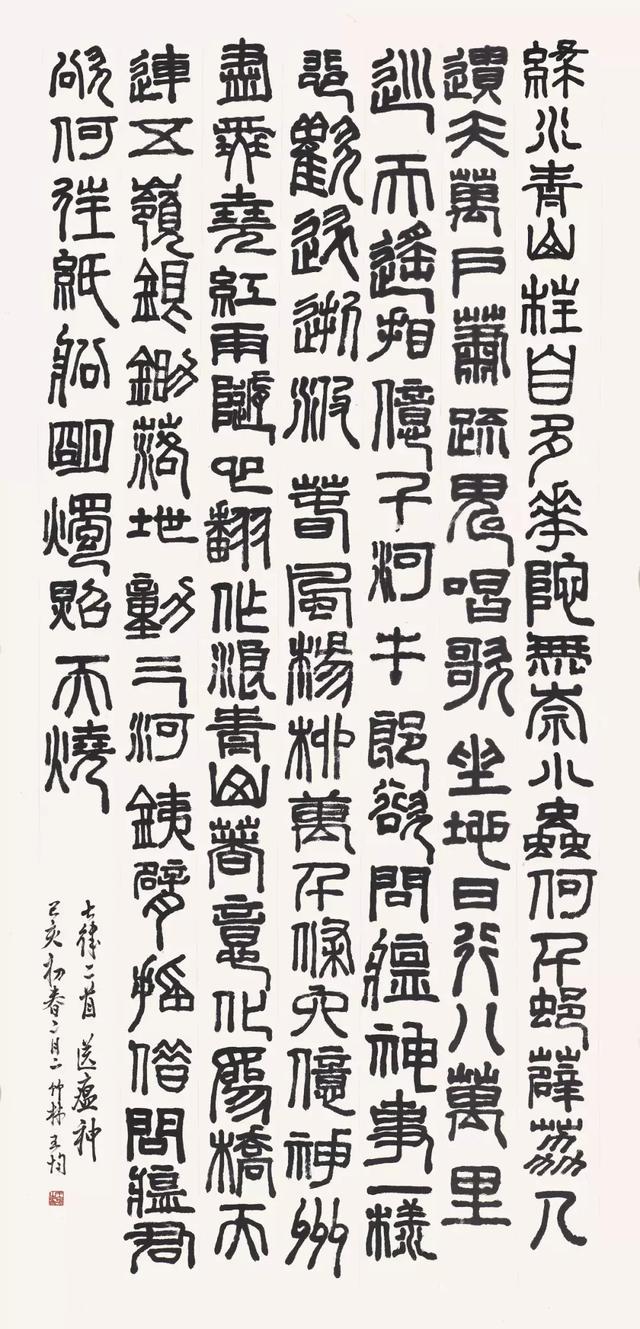 綠水青山枉自多華陀無奈小蟲何千邨薜荔人
遺矢萬戶蕭疏鬼唱歌坐地日行八萬里
巡天遙看億千河牛郎欲問瘟神事一樣
悲歡逐逝波春風楊柳萬千條六億神州
盡舜堯紅雨隨心翻作浪青山著意化爲橋天
連五嶺銀鋤落地動三河鐵臂搖借問瘟君
欲何往紙船明燭照天燒
七律二首 送瘟神
己亥初春二月二竹林王均